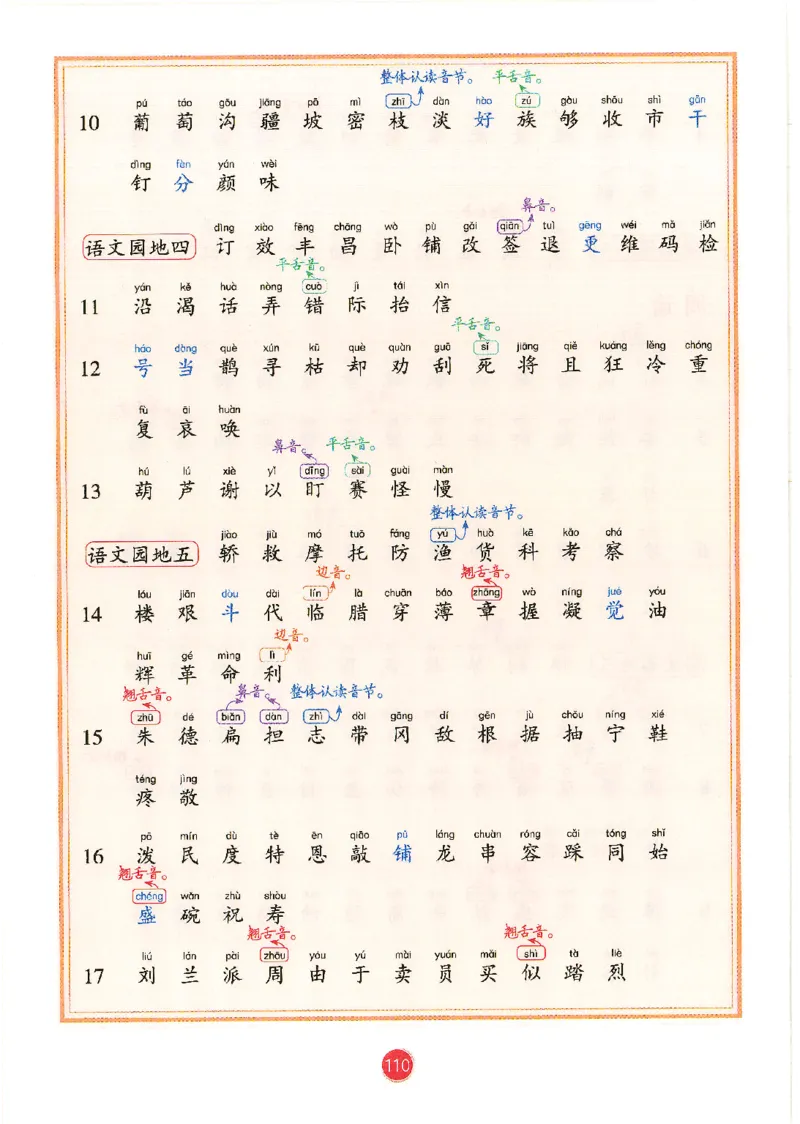 整体认读音节。 平舌音。
pú táo gōu jiāng pō mì zhī dàn hào zú gòu shōu shì gān
10 葡 萄 沟 疆 坡 密 枝 淡 好 族 够 收 市 干
dīng fèn yán wèi
钉 分 颜 味
鼻音。
dìng xiào fēng chāng wò pù gǎi qiān tuì gēng wéi mǎ jiǎn
语文园地四 订 效 丰 昌 卧 铺 改 签 退 更 维 码 检
平舌音。
yán kě huà nòng cuò jì tái xìn
11 沿 渴 话 弄 错 际 抬 信
平舌音。
háo dàng què xún kū què quàn guā sǐ jiāng qiě kuáng lěng chóng
12 号 当 鹊 寻 枯 却 劝 刮 死 将 且 狂 冷 重
fù āi huàn
复 哀 唤
鼻音。 平舌音。
hú lú xiè yǐ dīng sài guài màn
13 葫 芦 谢 以 盯 赛 怪 慢
整体认读音节。
jiào jiù mó tuō fáng yú huò kē kǎo chá
语文园地五 轿 救 摩 托 防 渔 货 科 考 察
边音。 翘舌音。
lóu jiān dǒu dài lín là chuān báo zhāng wò níng jué yóu
14 楼 艰 斗 代 临 腊 穿 薄 章 握 凝 觉 油
边音。
huī gé mìng lì
辉 革 命 利
翘舌音。 鼻音。 整体认读音节。
zhū dé biǎn dàn zhì dài gāng dí gēn jù chōu níng xié
15 朱 德 扁 担 志 带 冈 敌 根 据 抽 宁 鞋
téng jìng
疼 敬
pō mín dù tè ēn qiāo pū lóng chuàn róng cǎi tóng shǐ
16 泼 民 度 特 恩 敲 铺 龙 串 容 踩 同 始
翘舌音。
chéng wǎn zhù shòu
盛 碗 祝 寿
翘舌音。 翘舌音。
liú lán pài zhōu yóu yú mài yuán mǎi shì tà liè
17 刘 兰 派 周 由 于 卖 员 买 似 踏 烈
110